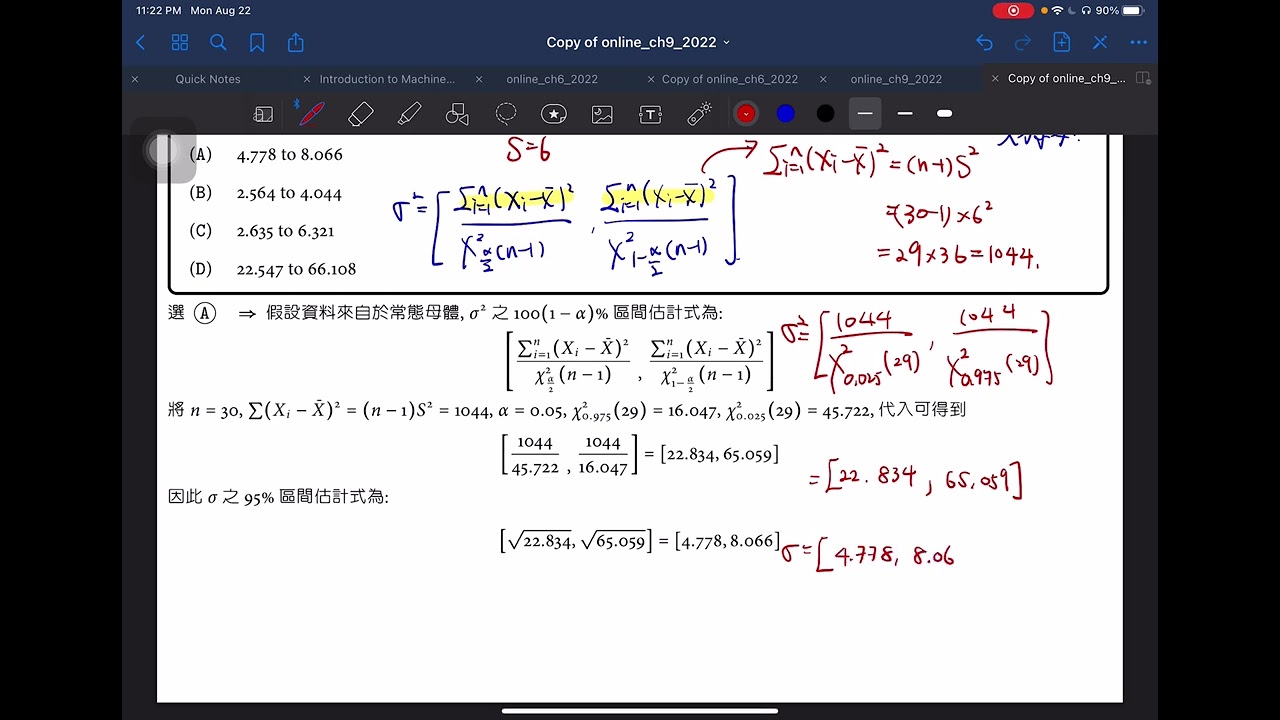 11:22 PM Mon Aug 22
90%
Copy of online_ch9_2022
Quick Notes
Introduction to Machine...
online_ch6_2022
Copy of online_ch6_2022
online_ch9_2022
Copy of online_ch9_...
S=6
∑ⁿᵢ₌₁(Xi-X̄)² = (n-1)S²
=(30-1)×6²
=29×36=1044,
(A) 4.778 to 8.066
(B) 2.564 to 4.044
(C) 2.635 to 6.321
(D) 22.547 to 66.108
σ²= [ ∑ⁿᵢ₌₁(Xi-X̄)² / χ²_{α/2}(n-1) , ∑ⁿᵢ₌₁(Xi-X̄)² / χ²_{1-α/2}(n-1) ]
選 (A) ⇒ 假設資料來自於常態母體, σ² 之 100(1 − α)% 區間估計式為:
[ ∑ⁿᵢ₌₁(Xi − X̄)² / χ²_{α/2}(n − 1) , ∑ⁿᵢ₌₁(Xi − X̄)² / χ²_{1−α/2}(n − 1) ]
σ²= [ 1044 / χ²_{0.025}(29) , 1044 / χ²_{0.975}(29) ]
將 n = 30, ∑(Xi − X̄)² = (n − 1)S² = 1044, α = 0.05, χ²_{0.975}(29) = 16.047, χ²_{0.025}(29) = 45.722, 代入可得到
[ 1044 / 45.722 , 1044 / 16.047 ] = [22.834, 65.059]
= [22.834, 65.059]
因此 σ 之 95% 區間估計式為:
[√22.834, √65.059] = [4.778, 8.066]
σ= [4.778, 8.06